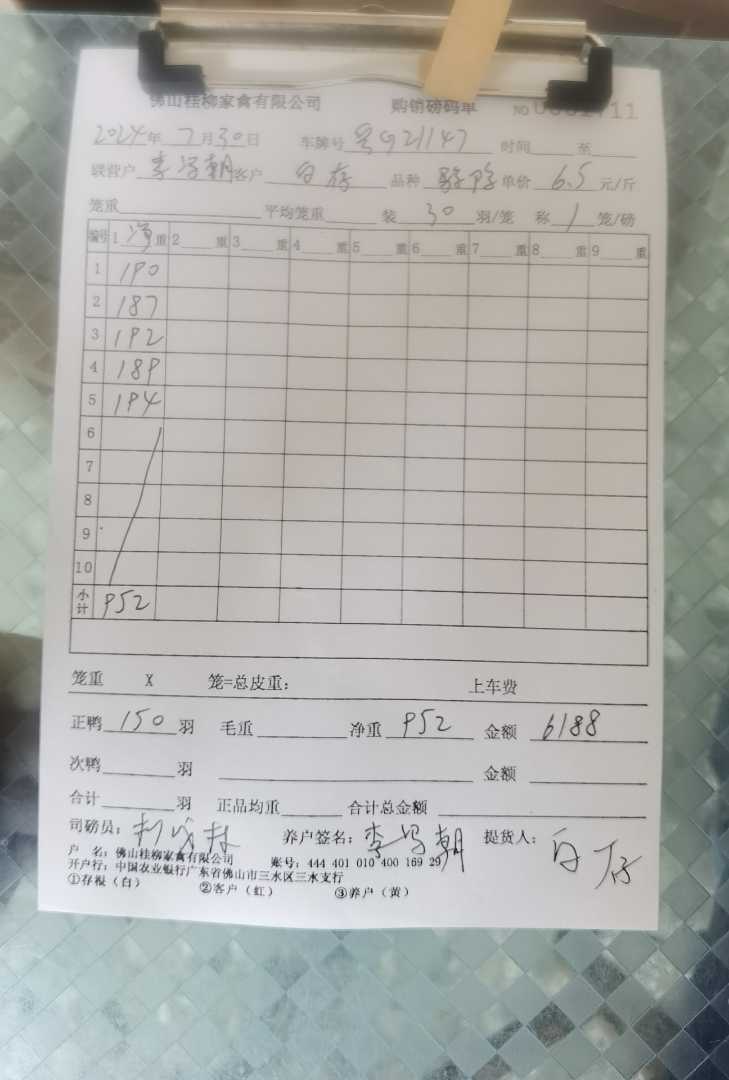 佛山桂柳家禽有限公司 购销磅码单 NO 711
2024年 7月30日 车牌号 粤G21147 时间 至
联营户 李 朝 客户 白存 品种 单价 6.5 元/斤
笼重 平均笼重 装 30 羽/笼 称 1 笼/磅
编号 1 净 重 2 重 3 重 4 重 5 重 6 重 7 重 8 重 9 重
1 190
2 187
3 192
4 189
5 194
6
7
8
9
10
小计 952
笼重 X 笼=总皮重: 上车费
正鸭 150 羽 毛重 净重 952 金额 6188
次鸭 羽 金额
合计 羽 正品均重 合计总金额
司磅员: 养户签名: 李 朝 提货人: 白存
户 名: 佛山桂柳家禽有限公司 账号: 444 401 010 400 169 29
开户行: 中国农业银行广东省佛山市三水区三水支行
①存根(白) ②客户(红) ③养户(黄)